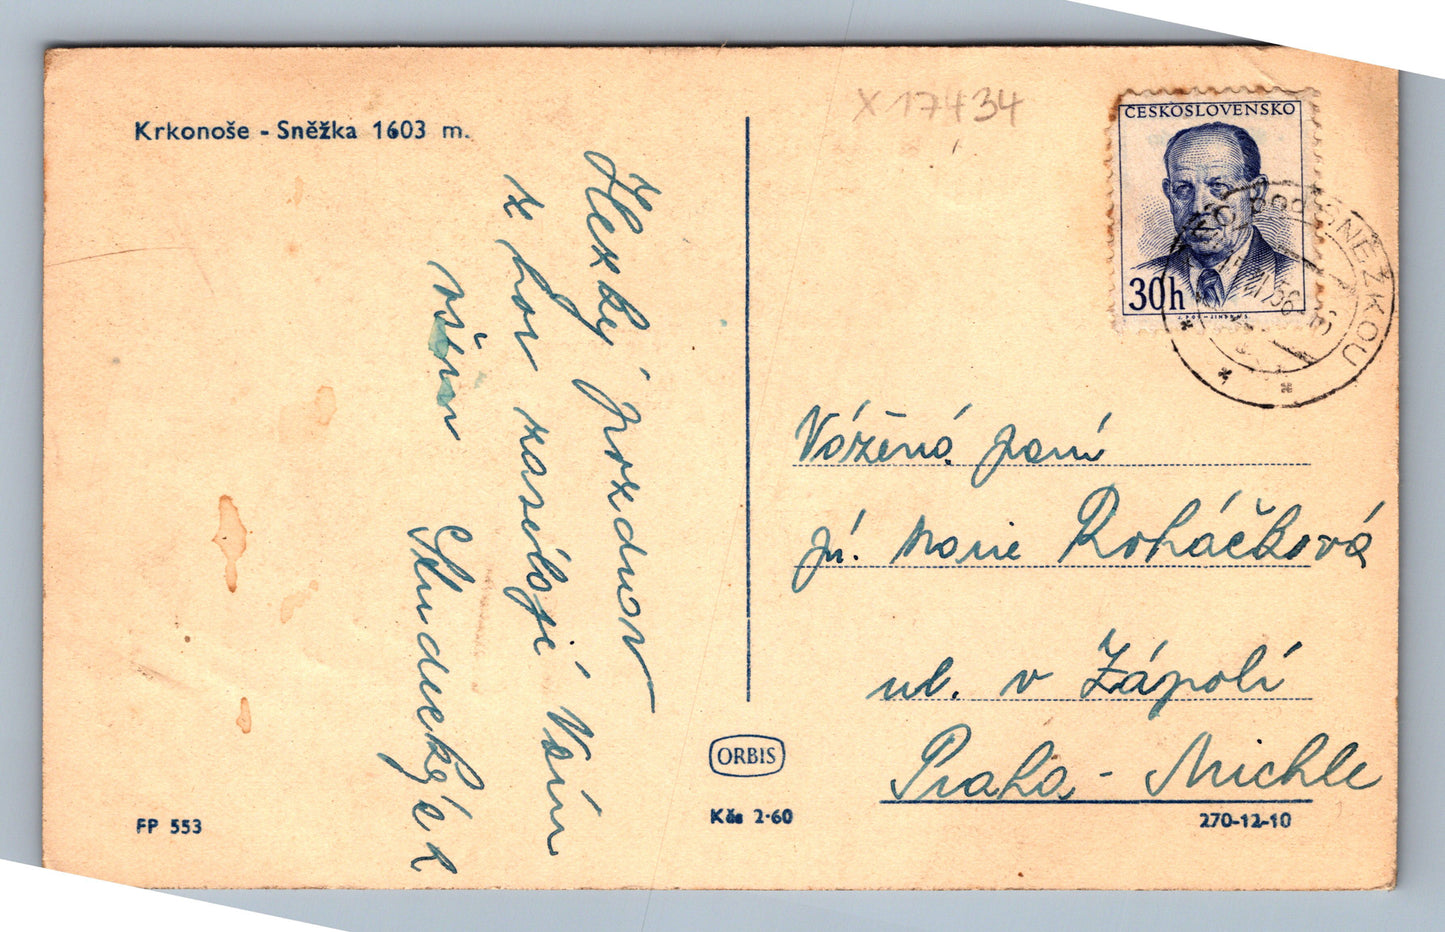 Krkonoše - Sněžka 1603 m.
X 17434
ČESKOSLOVENSKO
30h
POD SNĚŽKOU
56
Hezký pozdrav
z hor zasílají Vám
všem
Studeckých
Vážená paní
pí. Marie Roháčková
ul. v Zápolí
Praha - Michle
ORBIS
Kčs 2·60
FP 553
270-12-10